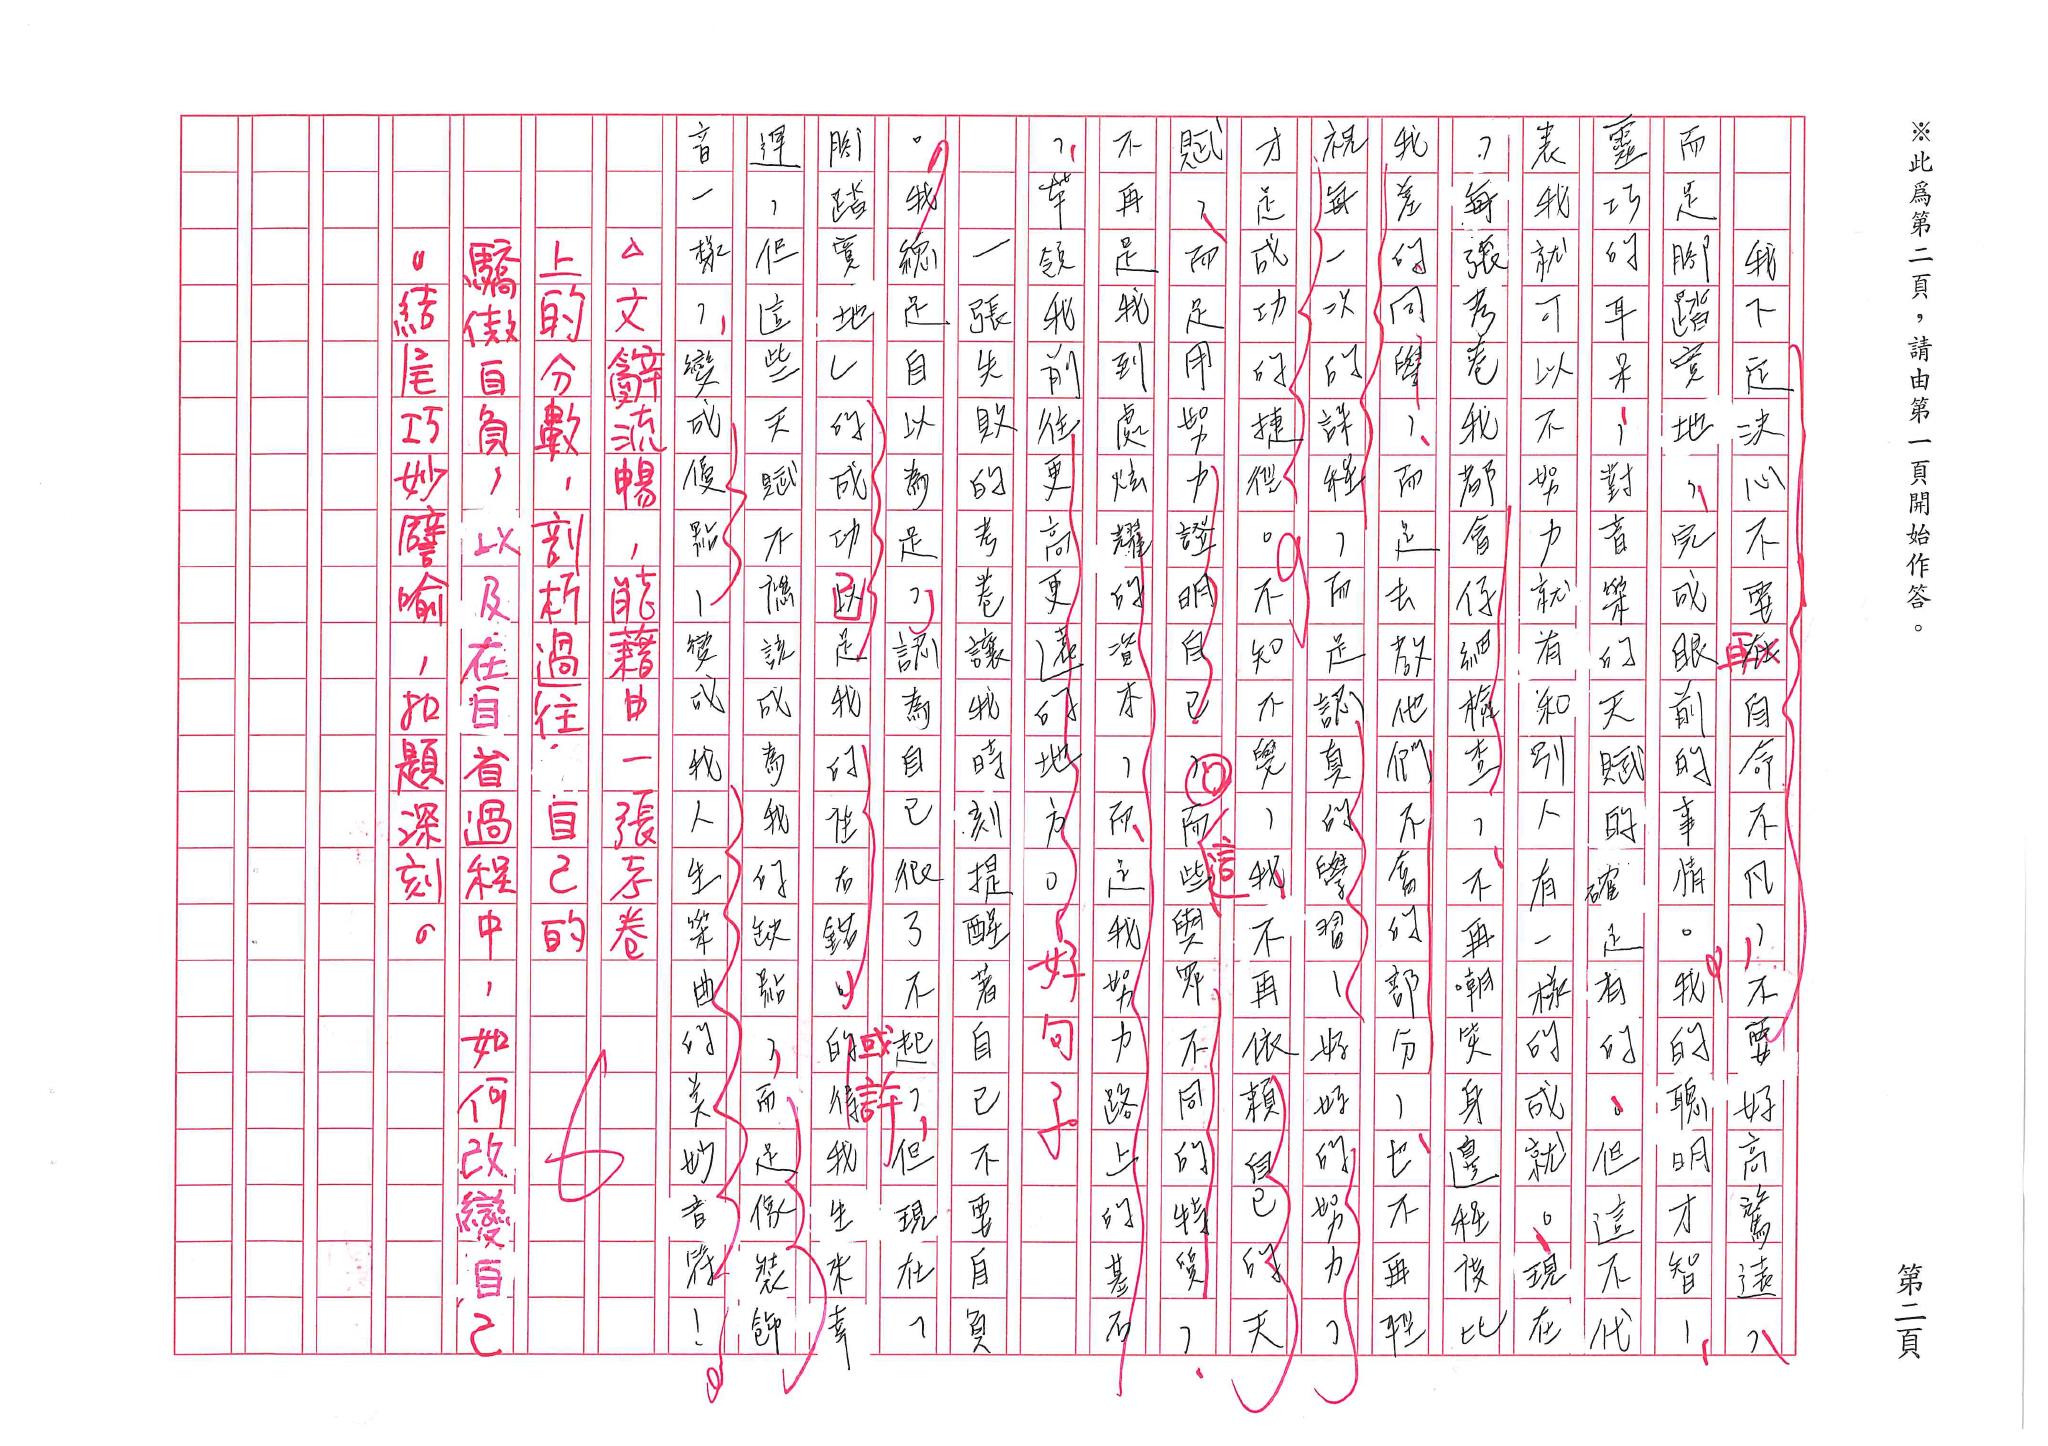 ※此為第二頁，請由第一頁開始作答。
第二頁
我下定決心不要再自命不凡，不要好高騖遠，
而是腳踏實地，完成眼前的事情。我的聰明才智，
靈巧的耳朵，對音樂的天賦的確是有的。但這不代
表我就可以不努力就有和別人有一樣的成就。現在
，每張考卷我都會仔細檢查，不再嘲笑身邊程度比
我差的同學，而是去教他們不會的部分，也不再輕
視每一次的課程，而是認真的學習，好好的努力，
才是成功的捷徑。不知不覺，我不再依賴自己的天
賦，而是用努力證明自己，而這些與眾不同的特質，
不再是我到處炫耀的資本，而是我努力路上的基石
，革領我前往更高更遠的地方。
好句子
一張失敗的考卷讓我時刻提醒著自己不要自負
。我總是自以為是，認為自己很了不起，但現在，
腳踏實地」的成功趴是我的座右銘。或許的得我生來幸
運，但這些天賦不應該成為我的缺點，而是像裝飾
音一樣，變成優點，變成我人生樂曲的美妙音符！
△文辭流暢，能藉由一張考卷
上的分數，剖析過往自己的
驕傲自負，以及在自省過程中，如何改變自己
。結尾巧妙譬喻，扣題深刻。